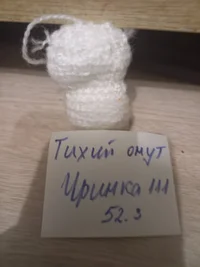 Тихий омут
Иринка Ш
52.3